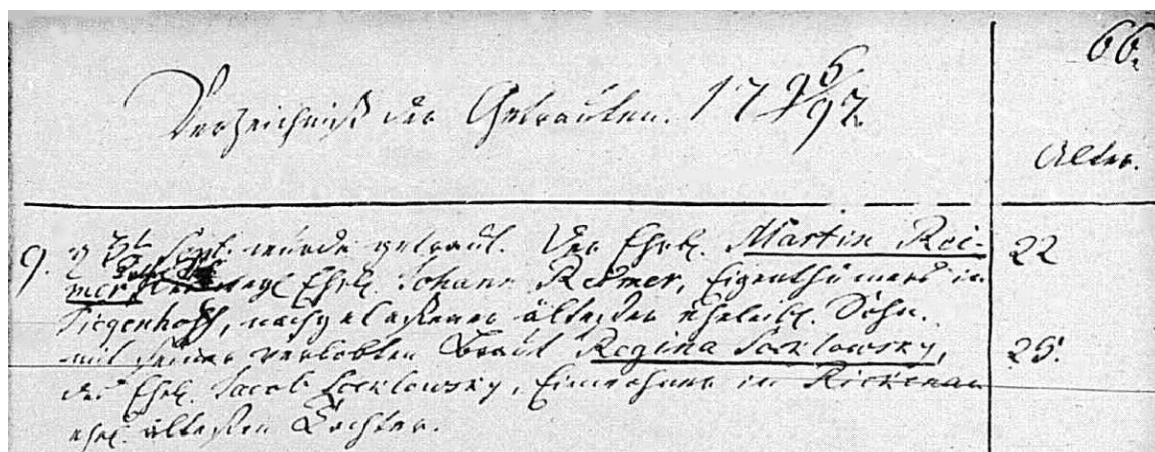 66.
Verzeichniß der Getrauten. 1796/97
Alter.
9. Sept. wurde getraut. Der Ehrb. Martin Rei- 22
mer, Ehrb. Johann Reimer, Eigenthümers in
Tiegenhoff, nachgelaßener ältester eheleibl. Sohn.
mit seiner verlobten Braut Regina Locklowsky, 25.
des Ehrb. Jacob Locklowsky, Einwohners in Rückenau
ehel. ältesten Tochter.